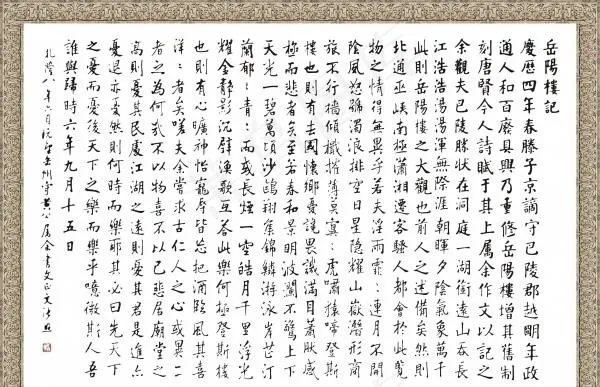 岳陽樓記
慶曆四年春滕子京謫守巴陵郡越明年政
通人和百廢具興乃重修岳陽樓增其舊制
刻唐賢今人詩賦于其上屬余作文以記之
余觀夫巴陵勝狀在洞庭一湖銜遠山吞長
江浩浩湯湯渾無際涯朝暉夕陰氣象萬千
此則岳陽樓之大觀也前人之述備矣然則
北通巫峽南極瀟湘遷客騷人都會於此覽
物之情得無異乎若夫淫雨霏〻連月不開
陰風怒號濁浪排空日星隱耀山嶽潛形商
旅不行檣傾檝摧薄莫冥〻虎嘯猿啼登斯
樓也則有去國懷鄉憂讒畏譏滿目蕭肰感
極而悲者矣至若春和景明波瀾不驚上下
天光一碧萬頃沙鷗翔集錦鱗游泳岸芷汀
蘭郁〻青〻而或長煙一空皓月千里浮光
耀金靜影沉璧漁歌互答此樂何極登斯樓
也則有心曠神怡寵辱皆忘把酒臨風其喜
洋〻者矣嗟夫余嘗求古仁人之心或異二
者之為何哉不以物喜不以己悲居廟堂之
高則憂其民處江湖之遠則憂其君是進亦
憂退亦憂然則何時而樂耶其必曰先天下
之憂而憂後天下之樂而樂乎噫微斯人吾
誰與歸時六年九月十五日